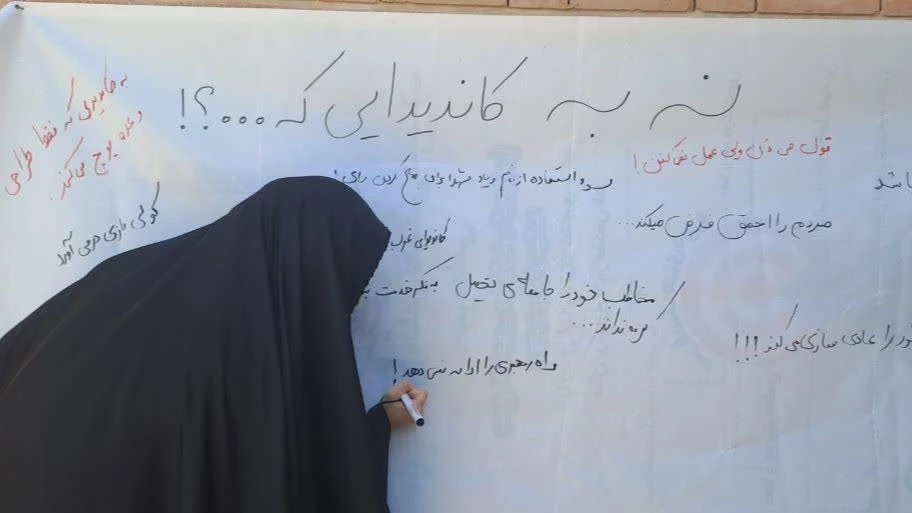 نه به کاندیدایی که ...؟!
به کاندیدی که فقط طراحی
وعده پوچ می‌کند.
قول می دن ولی عمل نمی‌کنن!
سوء استفاده از نام و یاد شهدا برای جمع کردن رای!
باشد
مردم را احمق فرض میکند...
کاندیدای غرب
مخاطب خود را جامعه‌ی تحصیل
کرده نداند...
به فکر قدرت
را عادی سازی می کند!!!
راه رهبری را ادامه نمی دهد!